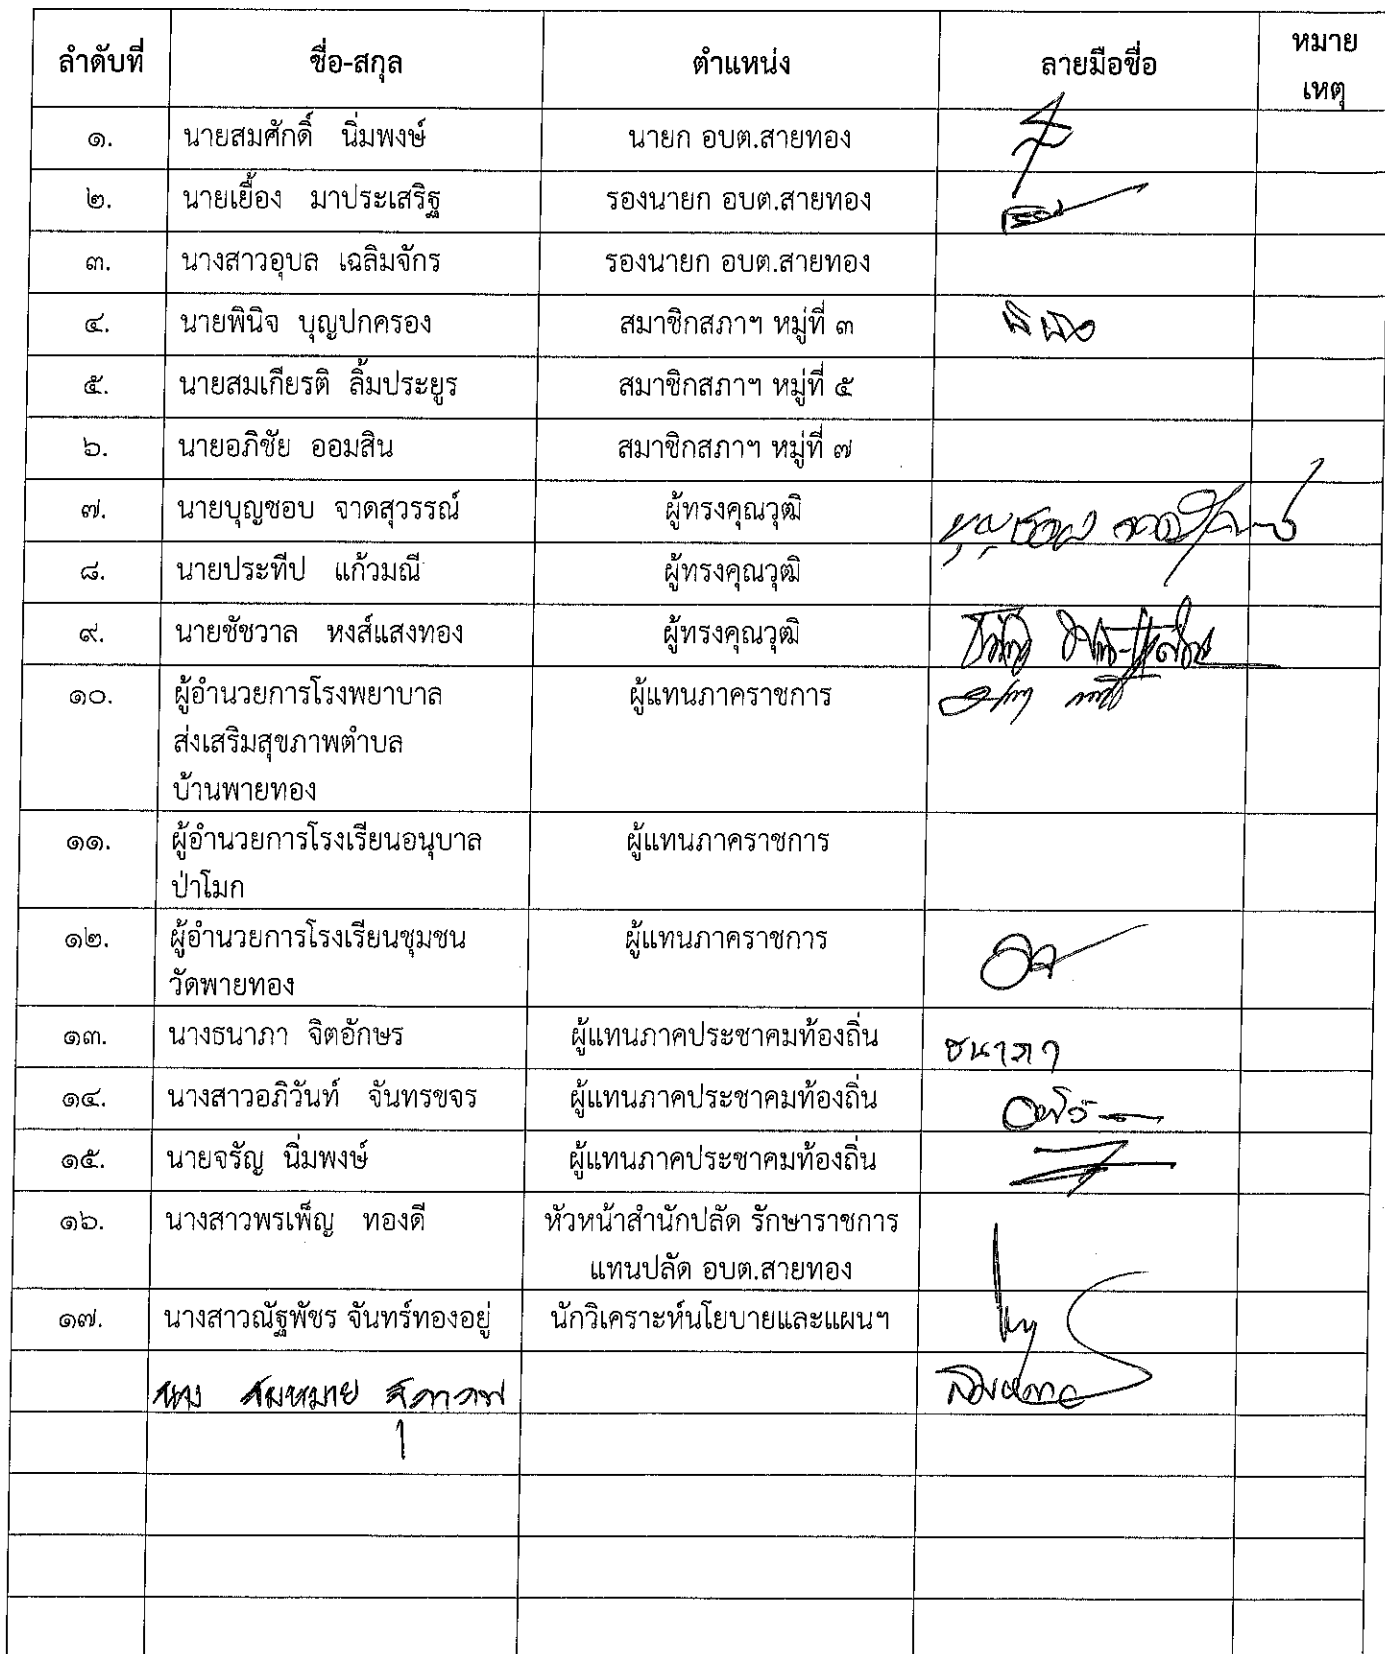 ลำดับที่ ชื่อ-สกุล ตำแหน่ง ลายมือชื่อ หมาย
เหตุ
๑. นายสมศักดิ์ นิ่มพงษ์ นายก อบต.สายทอง
๒. นายเยื้อง มาประเสริฐ รองนายก อบต.สายทอง
๓. นางสาวอุบล เฉลิมจักร รองนายก อบต.สายทอง
๔. นายพินิจ บุญปกครอง สมาชิกสภาฯ หมู่ที่ ๓ พินิจ
๕. นายสมเกียรติ ลิ้มประยูร สมาชิกสภาฯ หมู่ที่ ๕
๖. นายอภิชัย ออมสิน สมาชิกสภาฯ หมู่ที่ ๗
๗. นายบุญชอบ จาดสุวรรณ์ ผู้ทรงคุณวุฒิ บุญชอบ จาดสุวรรณ์
๘. นายประทีป แก้วมณี ผู้ทรงคุณวุฒิ
๙. นายชัชวาล หงส์แสงทอง ผู้ทรงคุณวุฒิ
๑๐. ผู้อำนวยการโรงพยาบาล ผู้แทนภาคราชการ
ส่งเสริมสุขภาพตำบล
บ้านพายทอง
๑๑. ผู้อำนวยการโรงเรียนอนุบาล ผู้แทนภาคราชการ
ป่าโมก
๑๒. ผู้อำนวยการโรงเรียนชุมชน ผู้แทนภาคราชการ
วัดพายทอง
๑๓. นางธนาภา จิตอักษร ผู้แทนภาคประชาคมท้องถิ่น ธนาภา
๑๔. นางสาวอภิวันท์ จันทรขจร ผู้แทนภาคประชาคมท้องถิ่น
๑๕. นายจรัญ นิ่มพงษ์ ผู้แทนภาคประชาคมท้องถิ่น
๑๖. นางสาวพรเพ็ญ ทองดี หัวหน้าสำนักปลัด รักษาราชการ
แทนปลัด อบต.สายทอง
๑๗. นางสาวณัฐพัชร จันทร์ทองอยู่ นักวิเคราะห์นโยบายและแผนฯ
นาง สมหมาย สุภาภพ สมหมาย